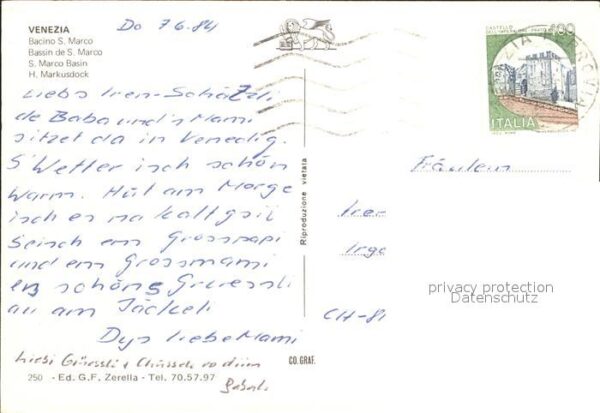 VENEZIA
Bacino S. Marco
Bassin de S. Marco
S. Marco Basin
H. Markusdock
Do 7.6.84
Liebs Iren-Schätzeli
de Baba und's Mami
sitzet da in Venedig.
S'Wetter isch schön
warm. Hüt am Morge
isch es na kalt gsi!
Seisch em Grosspapi
und em Grossmami
en schöns Grüessli
au am Jäckeli
Dys liebe Mami
Liebi Grüessli + Chüssli vo diim
Babali
250 - Ed. G.F. Zerella - Tel. 70.57.97
CO. GRAF.
Riproduzione vietata
CASTELLO
ITALIA
Fräulein
Iren
CH-81
privacy protection
Datenschutz